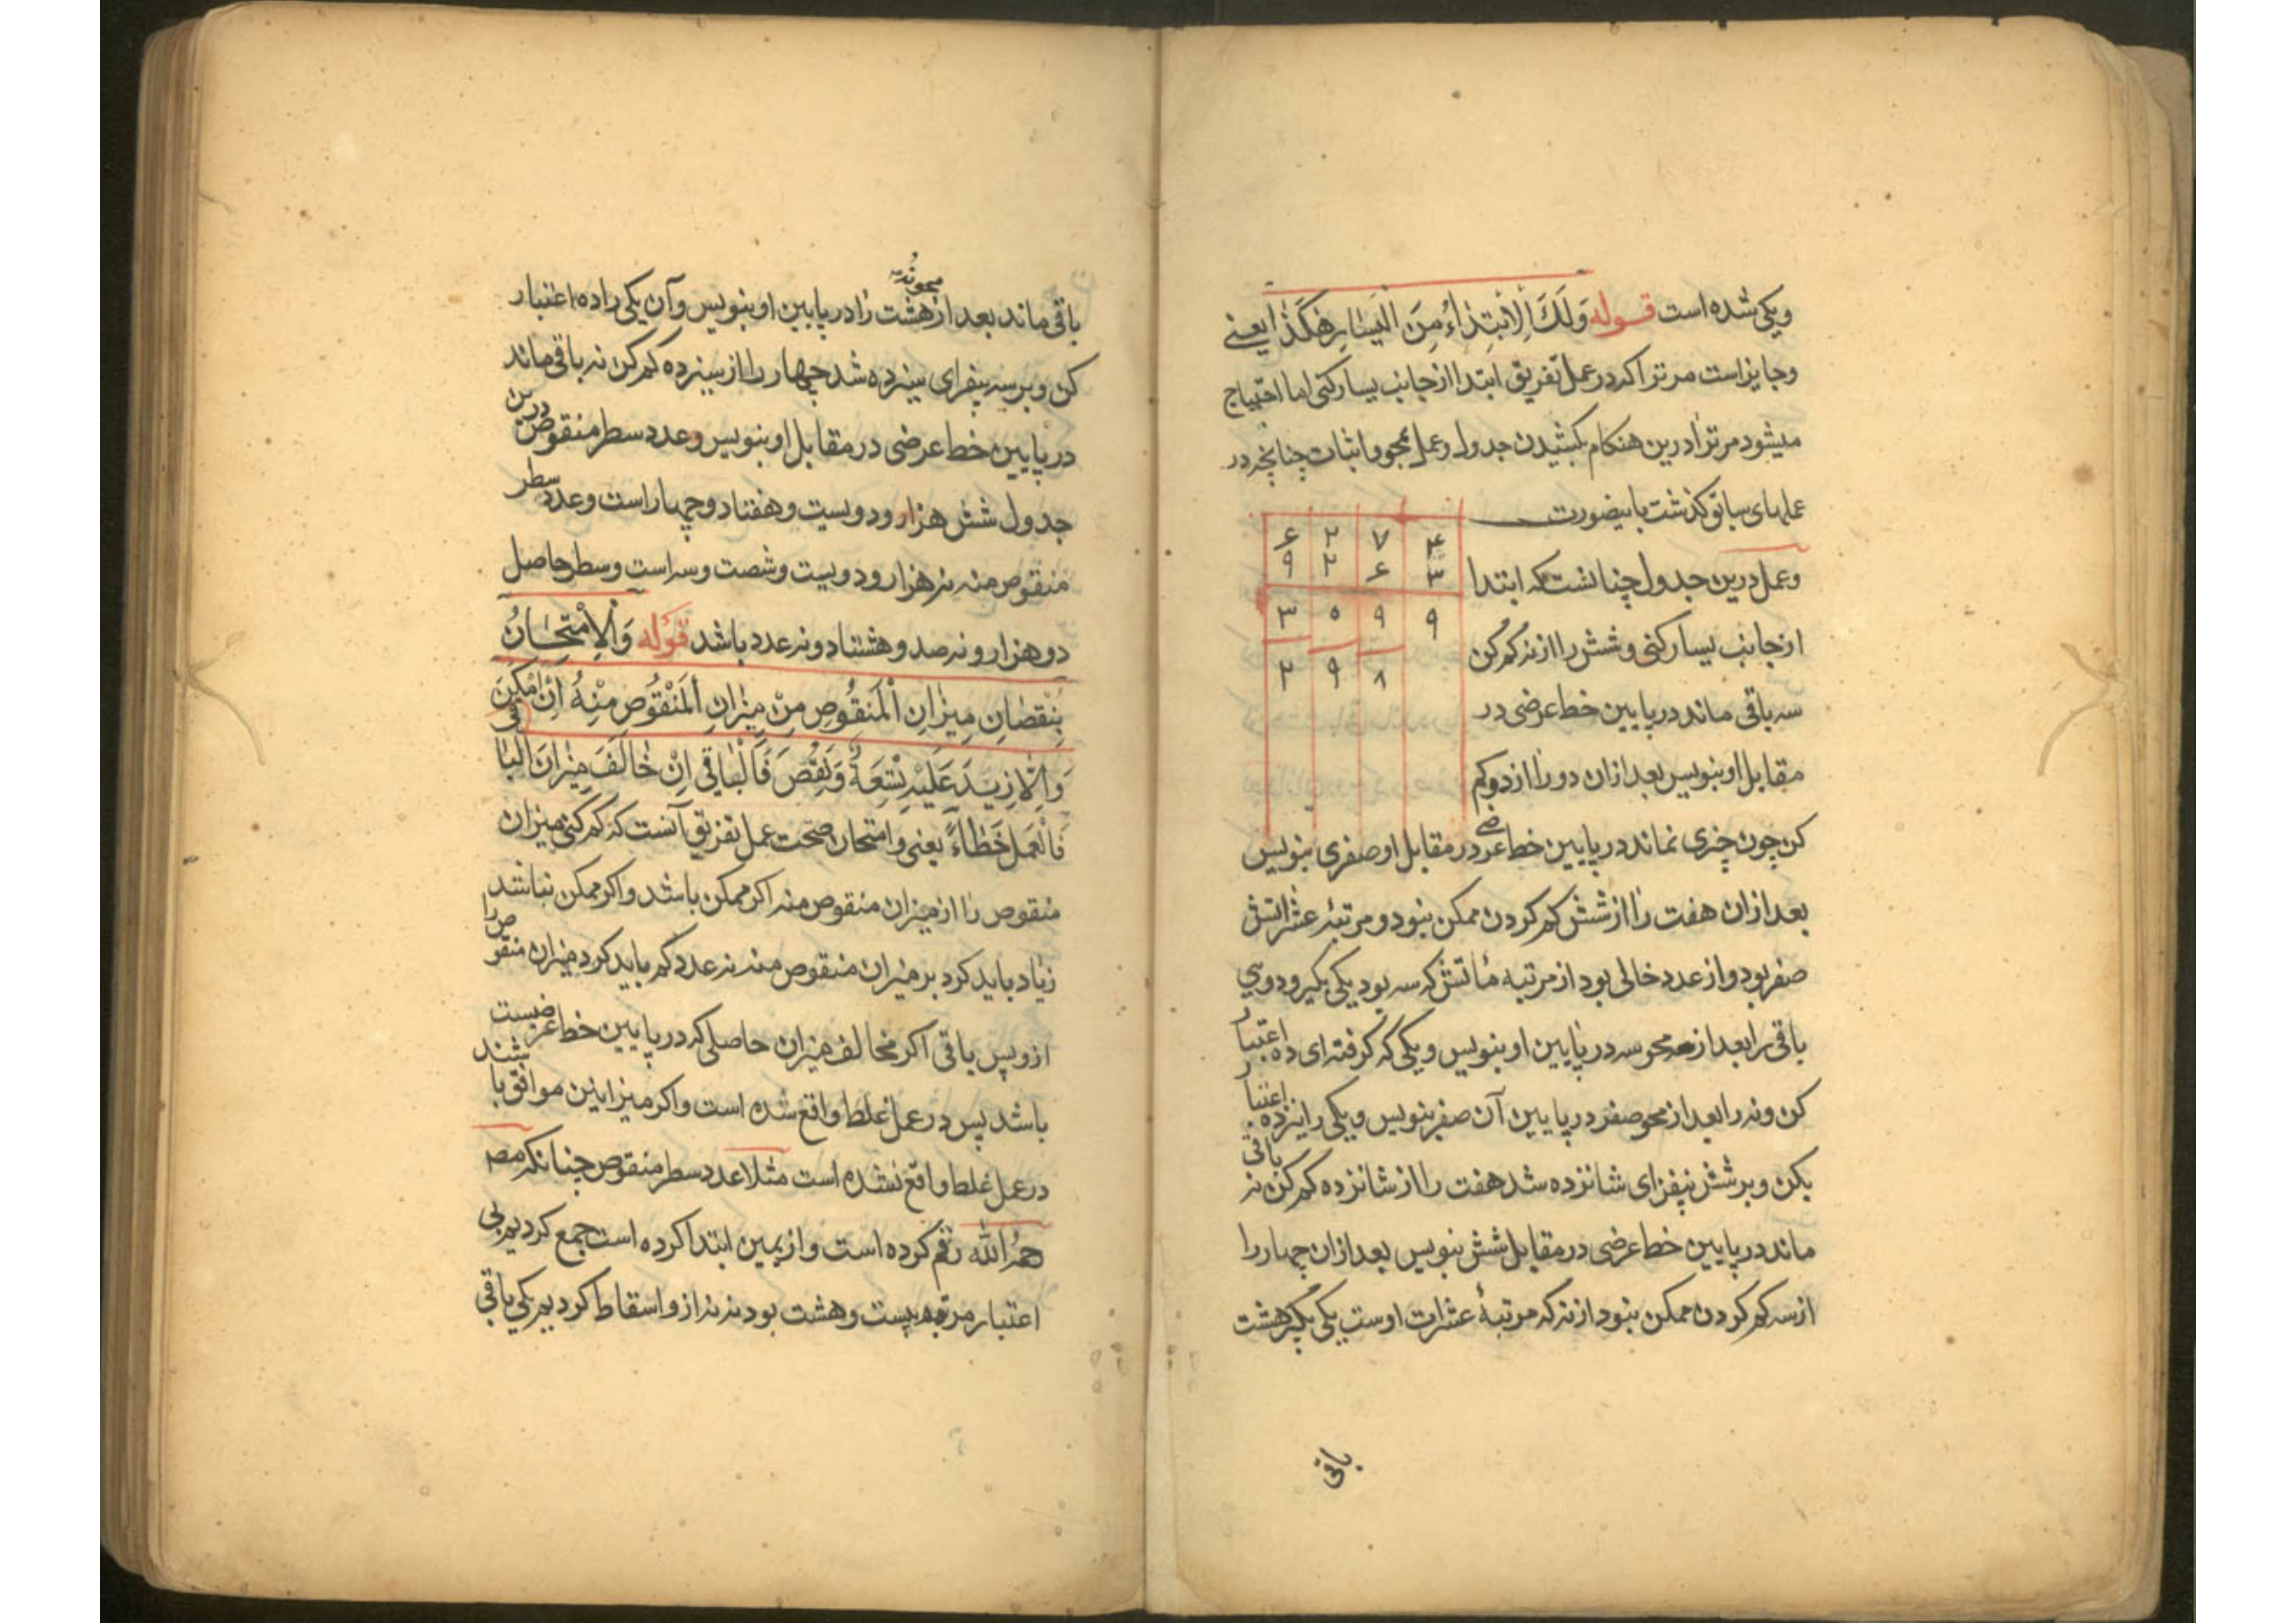 ویکی شده است قوله وَلَكَ الْاِبْتِدَاءُ مِنَ الْیَسَارِ هٰكَذَا یعنی
وجایز است مر ترا که در عمل تفریق ابتدا از جانب یسار کنی اما احتیاج
میشود مر ترا درین هنکام بکشیدن جدول وعمل محو واثبات چنانچه در
عملهای سابق کذشت باینصورت
۶ ۲ ۷ ۴
۹ ۲ ۶ ۳
۳ ۰ ۹ ۹
۲ ۹ ۸
وعمل درین جدول چنانست که ابتدا
از جانب یسار کنی وشش را از نه کم کن
سه باقی ماند در پایین خط عرضی در
مقابل او بنویس بعد ازان دو را از دو کم
کن چون چیزی نماند در پایین خط عرضی در مقابل او صفری بنویس
بعد ازان هفت را از شش کم کردن ممکن نبود و مرتبهٔ عشراتش
صفر بود واز عدد خالی بود از مرتبه مأتش که سه بود یکی بکیر ودوی
باقی را بعد از محو سه در پایین او بنویس ویکی که کرفته ای ده اعتبار
کن ونه را بعد از محو صفر در پایین آن صفر بنویس ویکی را نیز ده اعتبار
بکن وبر شش بیفزای شانزده شد هفت را از شانزده کم کن نه باقی
ماند در پایین خط عرضی در مقابل شش بنویس بعد ازان چهار را
از سه کم کردن ممکن نبود از نه که مرتبهٔ عشرات اوست یکی بکیر هشت
باقی
باقی ماند بعد از محو نه هشت را در پایین او بنویس وآن یکی را ده اعتبار
کن وبر سه بیفزای سیزده شد چهار را از سیزده کم کن نه باقی ماند
در پایین خط عرضی در مقابل او بنویس وعدد سطر منقوص درین
جدول شش هزار ودویست وهفتاد وچهار است وعدد سطر
منقوص منه نه هزار ودویست وشصت وسه است وسطر حاصل
دو هزار ونه صد وهشتاد ونه عدد باشد قوله وَالْاِمْتِحَانُ
بِنُقْصَانِ مِیْزَانِ الْمَنْقُوصِ مِنْ مِیْزَانِ الْمَنْقُوصِ مِنْهُ اِنْ اَمْكَنَ
وَاِلَّا زِیْدَ عَلَیْهِ تِسْعَةٌ وَنُقِصَ فَالْبَاقِی اِنْ خَالَفَ مِیْزَانَ الْبَاقی
فَالْعَمَلُ خَطَاءٌ یعنی وامتحان صحت عمل تفریق آنست که کم کنی میزان
منقوص را از میزان منقوص منه اکر ممکن باشد واکر ممکن نباشد
زیاد باید کرد بر میزان منقوص منه نه عدد کم باید کرد میزان منقوص را
ازو پس باقی اکر مخالف میزان حاصلی که در پایین خط عرضیست
باشد پس در عمل غلط واقع شده است واکر میزانین موافق باشند
در عمل غلط واقع نشده است مثلا عدد سطر منقوص چنانکه مصـ
رحمه الله رقم کرده است واز یمین ابتدا کرده است جمع کردیم بی
اعتبار مرتبه بیست وهشت بود نه نه ازو اسقاط کردیم یکی باقی